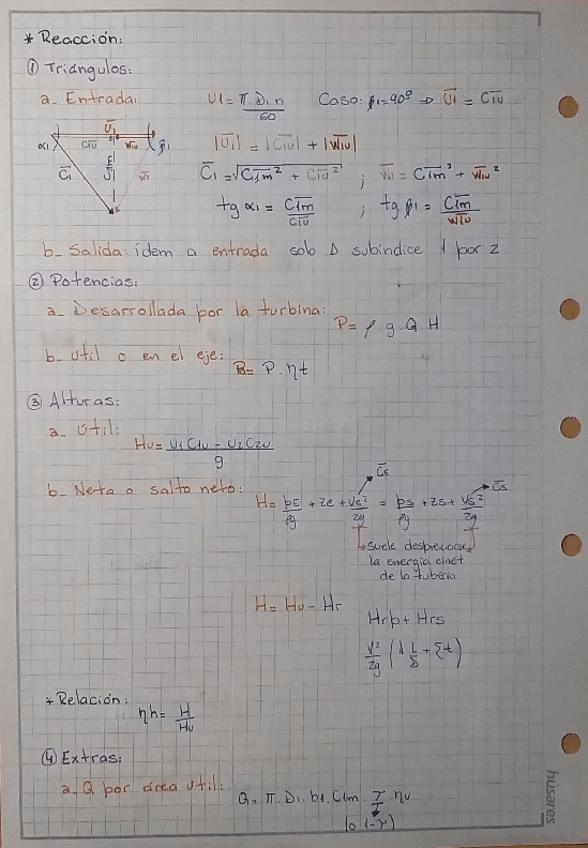 * Reacción:
① Triángulos:
a- Entrada: U1 = π.D1.n / 60 Caso: β1=90° ⇒ U̅1 = C̅1̅u̅
U̅1
α1 C1u W1u β1
C̅1 C̅1̅m̅ W̅1
|U̅1| = |C̅1̅u̅| + |W̅1̅u̅|
C̅1 = √C̅1̅m̅² + C̅1̅u̅² ; W̅1 = C̅1̅m̅² + W̅1̅u̅²
tg α1 = C̅1̅m̅ / C̅1̅u̅ ; tg β1 = C̅1̅m̅ / W̅1̅u̅
b- Salida: ídem a entrada solo Δ subindice 1 por 2
② Potencias:
a- Desarrollada por la turbina:
P = ρ g.Q.H
b- útil o en el eje:
Pa = P.ηt
③ Alturas:
a- Útil:
Hu = U1C1u - U2C2u / g
b- Neta o salto neto:
C̅s C̅s
H = PE / ρg + ze + Vs² / 2g = ps / ρg + zs + Vs² / 2g
suele despreciarse
la energía cinét
de la tubería
H = Hu - Hr
Hrp + Hrs
V² / 2g (λ L / D + Σξ)
* Relación:
ηh = H / Hu
④ Extras:
a- Q por área útil:
Q = π.D1.b1.C1m.τ.ηv
(o 1-τ)
husares